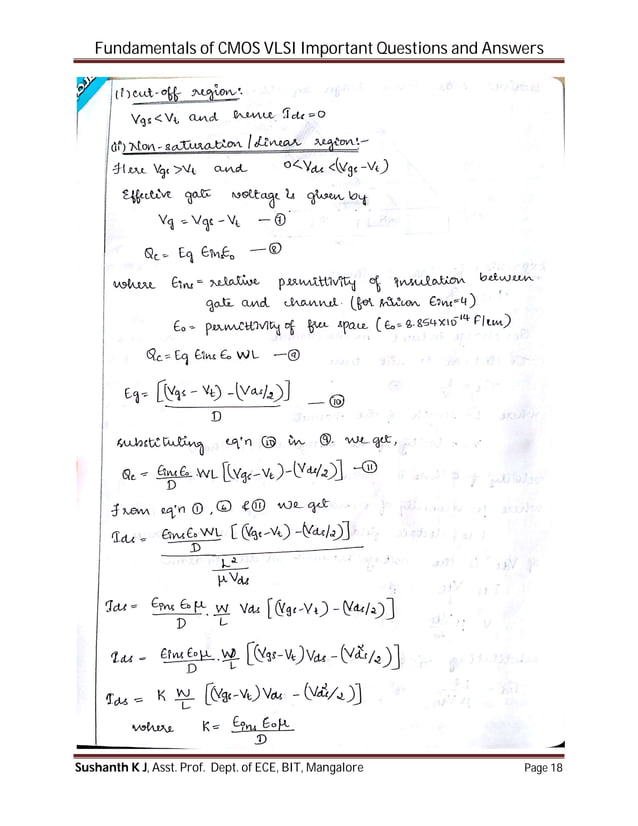 Fundamentals of CMOS VLSI Important Questions and Answers
(i) cut-off region:
Vgs < Vt and hence Ids = 0
(ii) Non-saturation / Linear region:-
Here Vgs > Vt and 0 < Vds < (Vgs - Vt)
Effective gate voltage is given by
Vg = Vgs - Vt — ⑦
Qc = Eg Eins E0 — ⑧
where Eins = relative permittivity of insulation between
gate and channel. (for silicon Eins = 4)
E0 = permittivity of free space (E0 = 8.854 X 10^-14 F/cm)
Qc = Eg Eins E0 WL — ⑨
Eg = [(Vgs - Vt) - (Vds/2)] / D — ⑩
substituting eq'n ⑩ in ⑨. we get,
Qc = Eins E0 / D WL [(Vgs - Vt) - (Vds/2)] — ⑪
From eq'n ①, ⑥ & ⑪ we get
Ids = Eins E0 WL / D [(Vgs - Vt) - (Vds/2)]
L² / μ Vds
Ids = Eins E0 μ / D . W / L Vds [(Vgs - Vt) - (Vds/2)]
Ids = Eins E0 μ / D . W / L [(Vgs - Vt) Vds - (Vds²/2)]
Ids = K W / L [(Vgs - Vt) Vds - (Vds²/2)]
where K = Eins E0 μ / D
Sushanth K J, Asst. Prof. Dept. of ECE, BIT, Mangalore Page 18